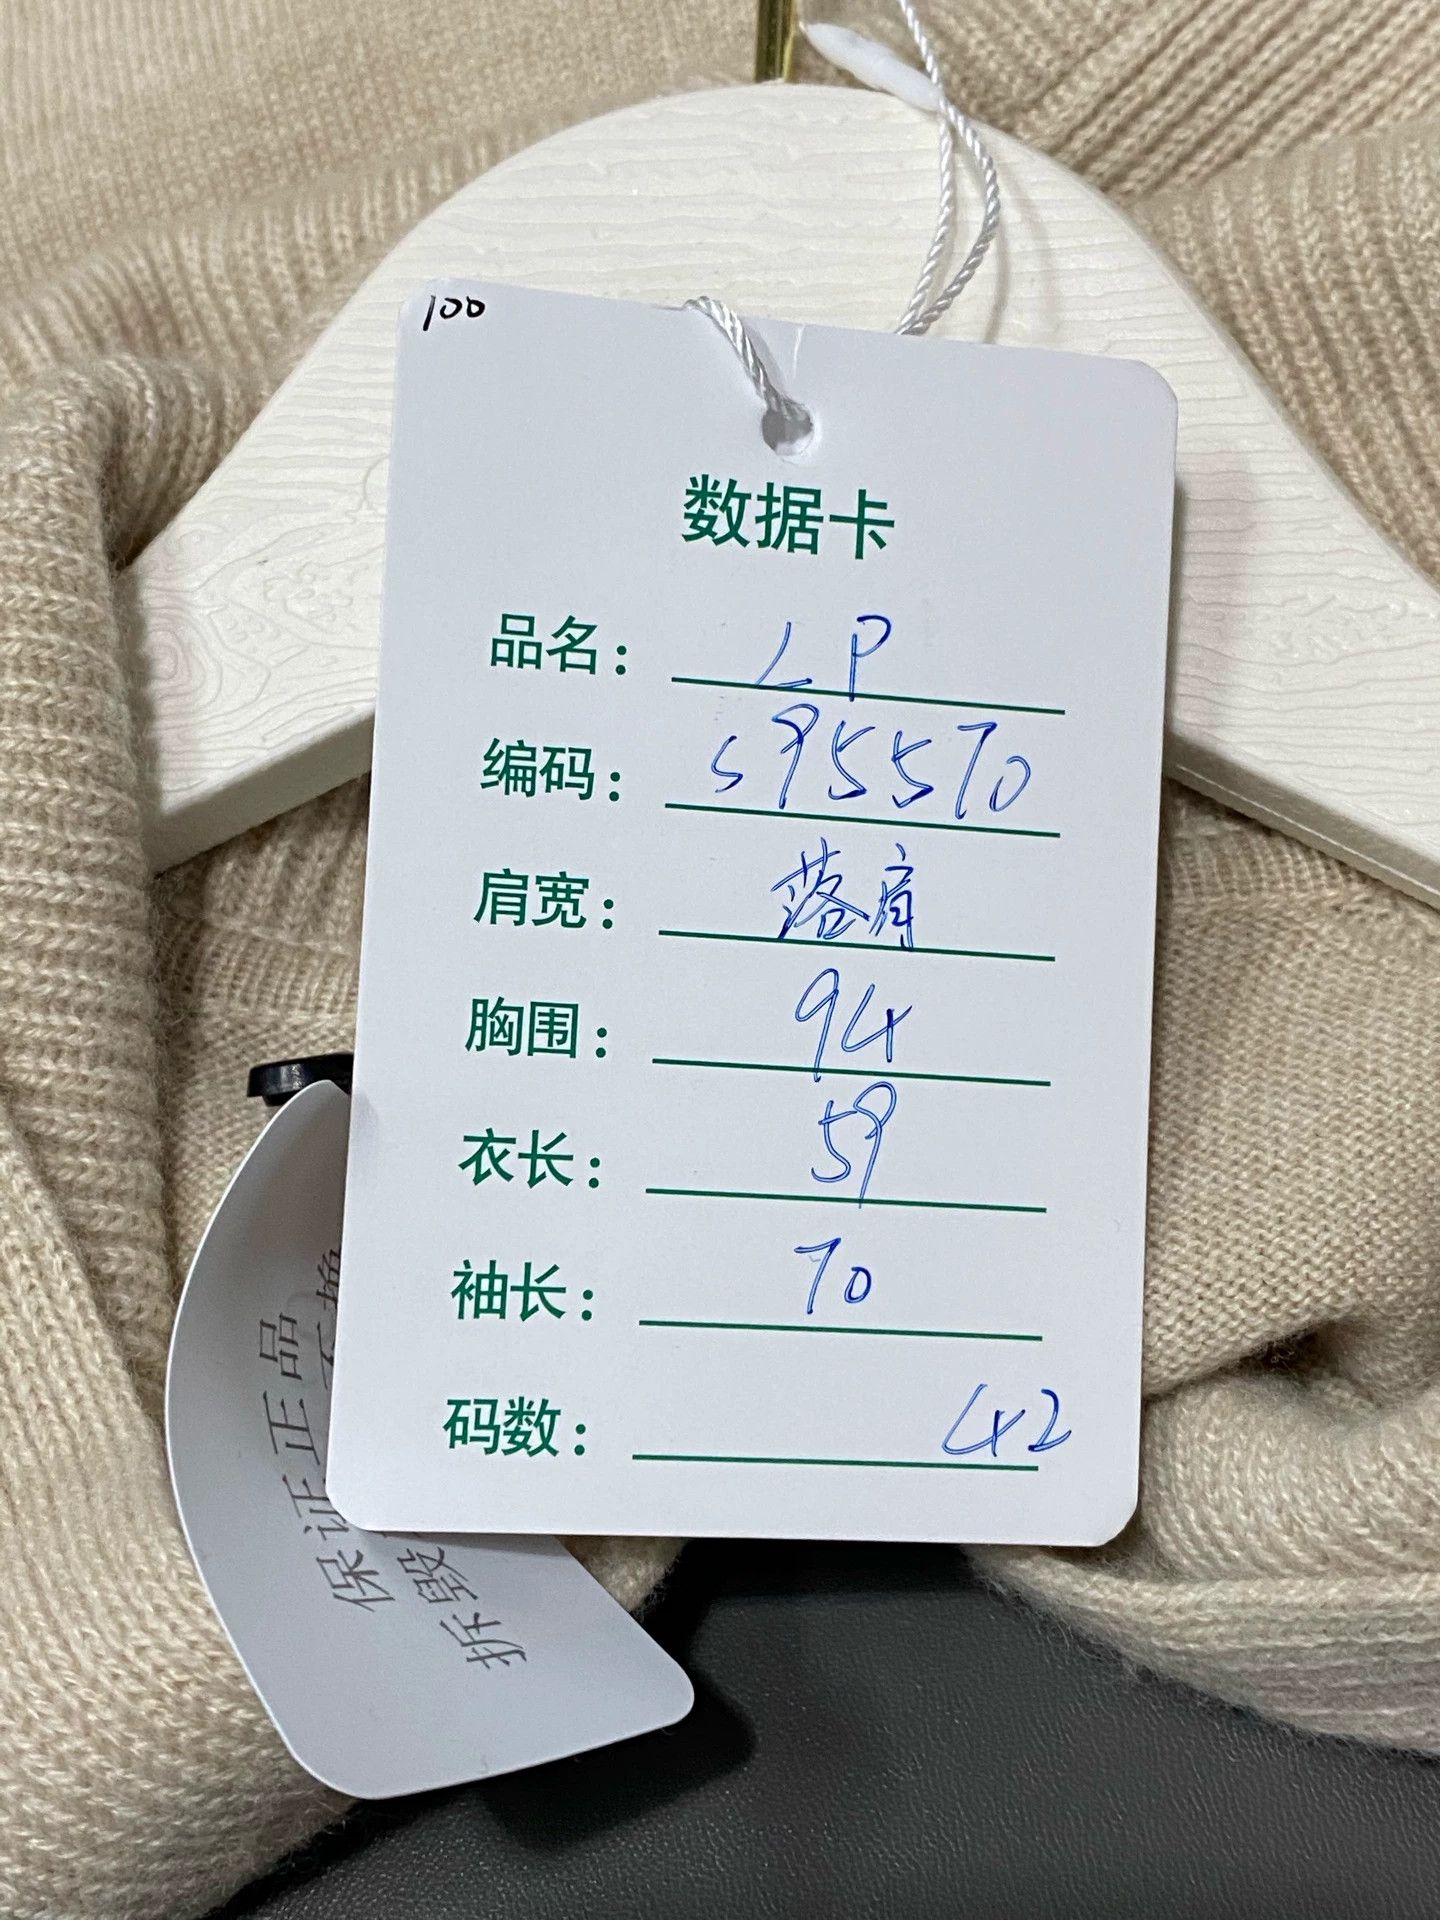 100
数据卡
品名： LP
编码： S95570
肩宽： 落肩
胸围： 94
衣长： 59
袖长： 70
码数： 42
保证正品
拆毁不换